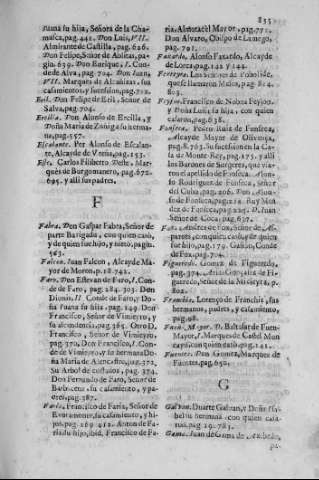 835
nuna su hija, Señora de la Cha-
musca, pag.441. Don Luis, VII.
Almirante de Castilla, pag. 626.
Don Felipe, Señor de Abiças, pa-
gin. 639. Don Enrique, I. Con-
de de Alva, pag. 704. Don Juan,
VII. Marques de Alcañizas, sus
casamientos, y sucession, pag.702.
Eril. Don Felipe de Eril, Señor de
Salva, pag. 704.
Ercilla. Don Alonso de Ercilla, y
Doña Maria de Zuñiga su herma-
na, pag. 557.
Escalante. Per Alonso de Escalan-
te, Alcayde de Vtrera, pag. 153.
Este. Carlos Filiberto Deste, Mar-
quès de Burgomanero, pag. 672.
695. y alli sus padres.
F
Fabra. Don Gaspar Fabra, Señor de
parte con quien casò,
y de quien fue hijo, y nieto, pagin.
563.
Falcon. Juan Falcon, Alcayde Ma-
yor de Moron, p. 18. 742.
Faro. Don Estevan de Faro, I. Conde
de Faro, pag. 284. 303. Don
Dionis, II. Conde de Faro, y Do-
ña Juana su hija, pag. 149. Don
Francisco, Señor de Vimieyro, y
su ascendencia, pag. 365. Otro D.
Francisco, Señor de Vimieyro,
pag. 370. Don Francisco, I. Con-
de de Vimieyro, y su hermana Do-
ña Maria de pag. 372.
Su Arbol de costados, pag. 374.
Don Fernando de Faro, Señor de
su casamiento, y pa-
pag. 387.
Faria. Francisco de Faria, Señor de
su casamiento, y hi-
jos, pag. 269. 412. Anton de Fa-
ria su hijo, ibid. Francisco de Fa-
ria, Almotacel Mayor, pag. 772.
Don Alvaro, Obispo de Lamego,
pag. 701.
Faxardo. Alonso Faxardo, Alcayde
de Lorca, pag. 142. y 143.
Ferreyra. Los Señores de
que se llamaron pag. 814.
803.
Feyjoo. Francisco de Noboa Feyjoo,
y Doña Luisa su hija, con quien
casaron, pag. 638.
Fonseca. Pedro Ruiz de Fonseca,
Alcayde Mayor de Olivença,
pag. 8. 763. Su sucession en la Ca-
sa de Monte Rey, pag. 175. y alli
los Barones de que vsa-
ron el apellido de Fonseca. Alon-
so Rodriguez de Fonseca, Señor
del Cubo, pag. 206. Don Alon-
so de Fonseca, pag. Ruy Men-
dez de Fonseca, pag. 225. D. Juan
Señor de Coca, pag. 637.
Fox. Andres de Fox, Señor de
con quien casò, y de quien
fue hijo, pag. 179. Gaston, Conde
de Fox, pag. 704.
Figueredo. Gomez de Figueredo,
pag. 374. Gonçalez de Fi-
gueredo, Señor de p.
802.
Franchis. Lorenço de Franchis, sus
hermanos, padres, y casamiento,
pag. 98.
Fuen-Mayor. D. Baltasar de Fuen-
Mayor, I. Marques de Castel Mon-
cayo, con quien casò, pag. 141.
Fuentes. Don Gomez, Marques de
Fuentes, pag. 650.
G
Galvan. Duarte Galvan, y Doña Isa-
bel su hermana con quien casa-
ron, pag. 29. 783.
Gama. Juan de Gama de
pa-